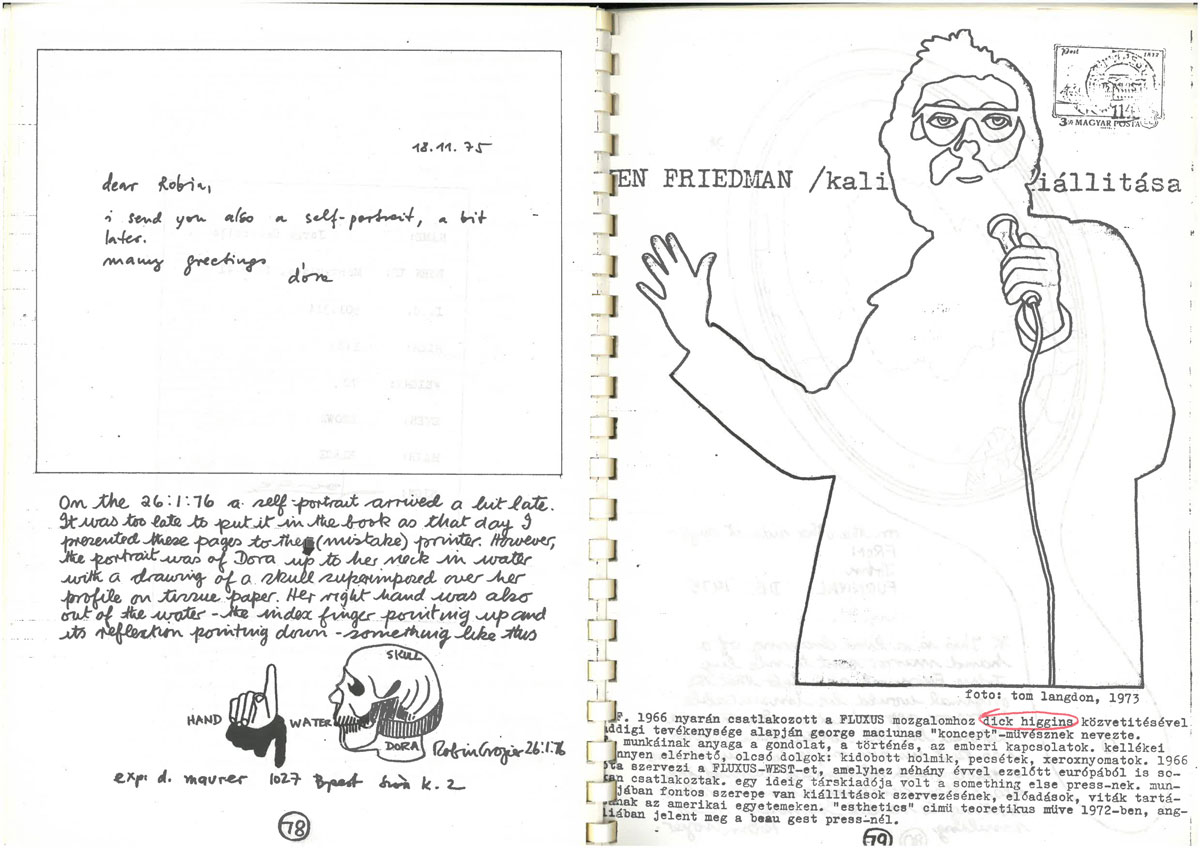 18.11.75
dear Robin,
i send you also a self-portrait, a bit
later.
many greetings
dóra
On the 26:1:76 a self-portrait arrived a bit late.
It was too late to put it in the book as that day I
presented these pages to the (mistake) printer. However,
the portrait was of Dora up to her neck in water
with a drawing of a skull superimposed over her
profile on tissue paper. Her right hand was also
out of the water - the index finger pointing up and
its reflection pointing down - something like this
SKULL
HAND
WATER
DORA
Robin Crozier 26:1:76
exp: d. maurer 1027 Bpest k. 2
78
post 1977
3Ft MAGYAR POSTA
EN FRIEDMAN /kali iállitása
foto: tom langdon, 1973
F. 1966 nyarán csatlakozott a FLUXUS mozgalomhoz dick higgins közvetitésével
ddigi tevékenysége alapján george maciunas "koncept"-müvésznek nevezte.
munkáinak anyaga a gondolat, a történés, az emberi kapcsolatok. kellékei
nnyen elérhető, olcsó dolgok: kidobott holmik, pecsétek, xeroxnyomatok. 1966
ta szervezi a FLUXUS-WEST-et, amelyhez néhány évvel ezelőtt európából is so-
an csatlakoztak. egy ideig társkiadója volt a something else press-nek. mun-
jában fontos szerepe van kiállitások szervezésének, előadások, viták tartá-
nak az amerikai egyetemeken. "esthetics" cimü teoretikus müve 1972-ben, ang-
liában jelent meg a beau gest press-nél.
79